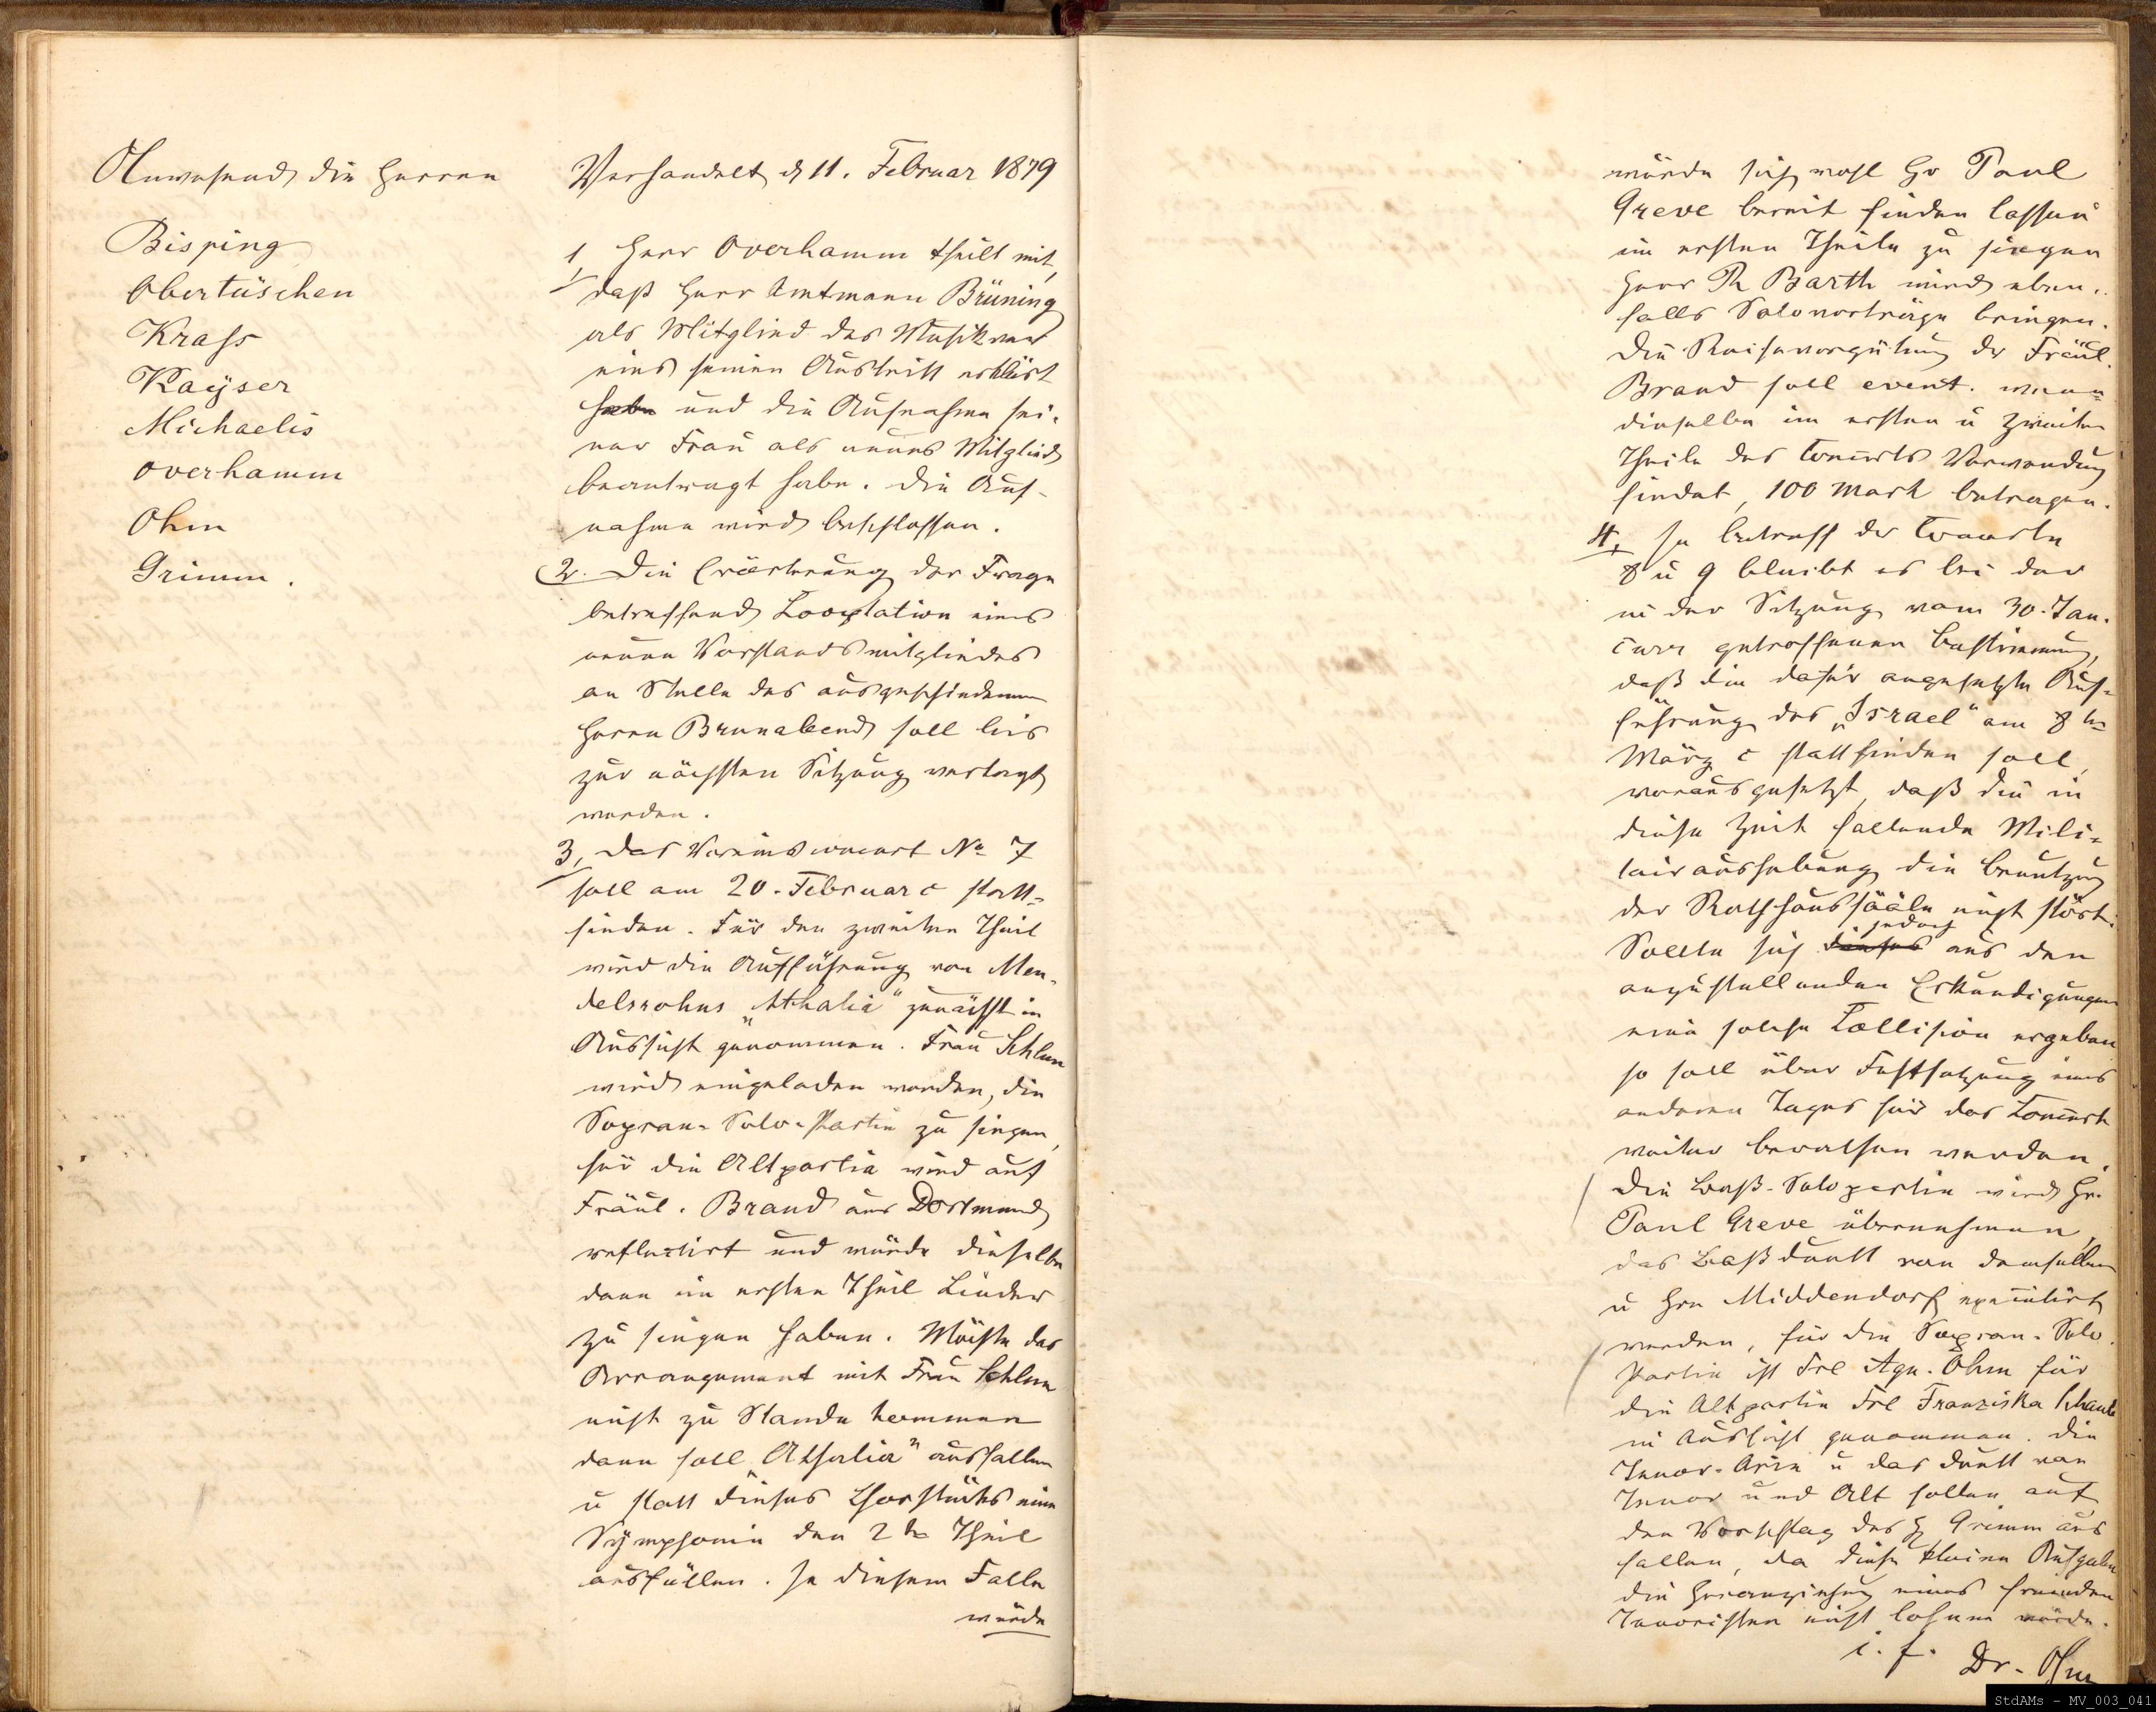 Anwesend die Herren
Bisping
Obertüschen
Krass
Kayser
Michaelis
Overhamm
Ohm
Grimm.
Verhandelt d 11. Februar 1879
1, Herr Overhamm theilt mit,
daß Herr Amtmann Brüning
als Mitglied des Musikver
eins seinen Austritt erklärt
habe und die Aufnahme sei-
ner Frau als neues Mitglied
beantragt habe. Die Auf-
nahme wird beschlossen.
2. Die Erörterung der Frage
betreffend Cooptation eines
neuen Vorstandsmitgliedes
an Stelle des ausgeschiedenen
Herrn Brunabend soll bis
zur nächsten Sitzung vertagt
werden.
3, Das Vereinsconcert No 7
soll am 20. Februar c statt=
finden. Für den zweiten Theil
wird die Aufführung von Men-
delssohns „Athalia" zunächst in
Aussicht genommen. Frau Schlun
wird eingeladen werden, die
Sopran-Solo-Partie zu singen,
für die Altpartie wird auf
Fräul. Brand aus Dortmund
reflectirt und würde dieselbe
dann im ersten Theil Lieder
zu singen haben. Möchte das
Arrangement mit Frau Schlun
nicht zu Stande kommen
dann soll „Athalia" ausfallen
u statt dieses Chorstücks eine
Symphonie den 2ten Theil
ausfüllen. In diesem Falle
würde
würde sich wohl Hr Paul
Greve bereit finden lassen
im ersten Theile zu singen
Herr Th Barth wird eben-
falls Solovorträge bringen.
Die Reisevergütung der Fräul.
Brand soll event. wenn
dieselbe im ersten u zweiten
Theile des Concerts Verwendung
findet, 100 Mark betragen.
4, In betreff der Concerte
8 u 9 bleibt es bei der
in der Sitzung vom 30. Jan.
curr getroffenen Bestimmung,
daß die dafür angesetzte Auf-
führung des „Israel" am 8ten
März c stattfinden soll,
vorausgesetzt, daß die in
diese Zeit fallende Mili-
tairaushebung die Benutzung
der Rathhaussääle nicht stört.
Sollte sich dieses jedoch aus den
anzustellenden Erkundigungen
eine solche Collision ergeben
so soll über Festsetzung eines
anderen Tages für das Concert
weiter berathen werden.
Die Baß-Solopartie wird Hr.
Paul Greve übernehmen,
das Baßduett von demselben
u Hrn Middendorf executirt
werden, für die Sopran-Solo
Partie ist Frl Agn. Ohm für
die Altpartie Frl Franziska
in Aussicht genommen. Die
Tenor-Arie u das Duett von
Tenor und Alt sollen auf
den Vorschlag des H Grimm aus
fallen, da diese kleine Aufgabe
die Heranziehung eines fremden
Tenoristen nicht lohnen würde.
i. f. Dr. Ohm
StdAMs - MV_003_041